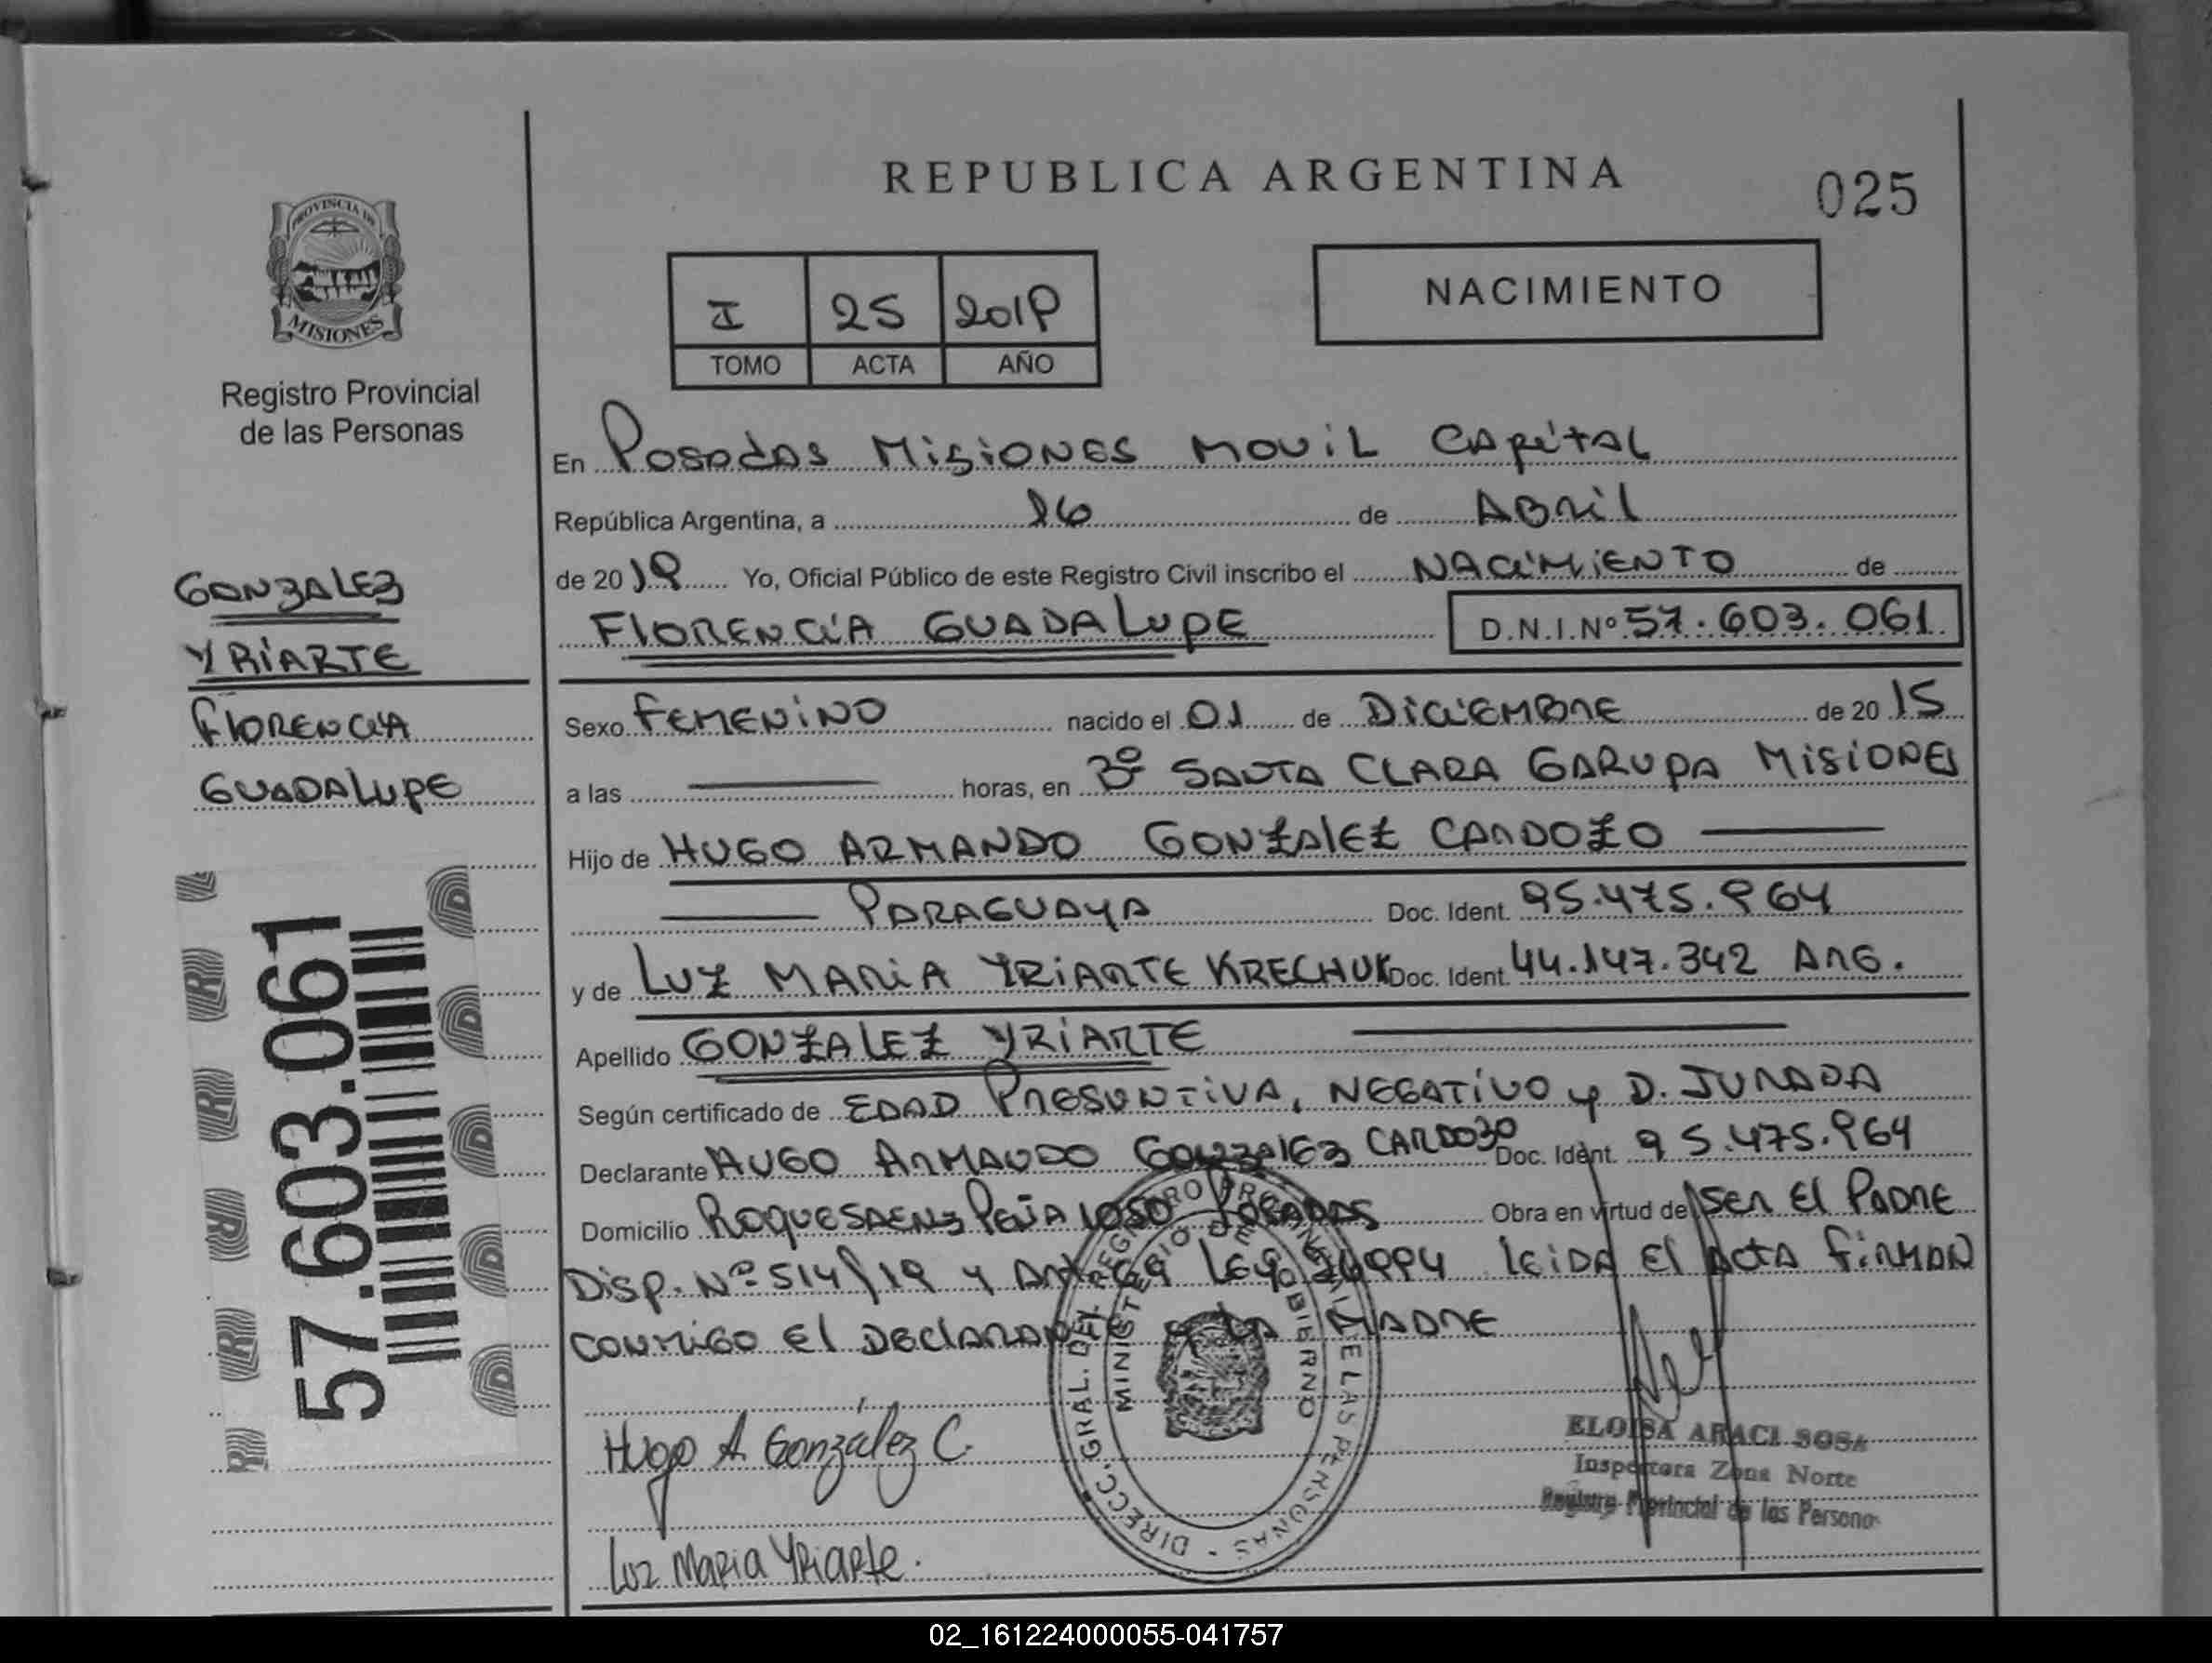 REPUBLICA ARGENTINA
025
PROVINCIA DE
MISIONES
Registro Provincial
de las Personas
I 25 2019
TOMO ACTA AÑO
NACIMIENTO
En Posadas Misiones Movil Capital
República Argentina, a 16 de Abril
de 2019 Yo, Oficial Público de este Registro Civil inscribo el NACIMIENTO de
FLORENCIA GUADALUPE D.N.I.Nº 57.603.061
GONZALEZ
YRIARTE
FLORENCIA
GUADALUPE
57.603.061
Sexo FEMENINO nacido el 01 de DICIEMBRE de 2015
a las horas, en Bº SANTA CLARA GARUPA MISIONES
Hijo de HUGO ARMANDO GONZALEZ CARDOZO
PARAGUAYA Doc. Ident. 95.475.964
y de LUZ MARIA YRIARTE KRECHUK Doc. Ident. 44.147.342 ARG.
Apellido GONZALEZ YRIARTE
Según certificado de EDAD PRESUNTIVA, NEGATIVO y D. JURADA
Declarante HUGO ARMANDO GONZALEZ CARDOZO Doc. Ident. 95.475.964
Domicilio ROQUE SAENZ PEÑA 1050 POSADAS Obra en virtud de SER El PADRE
Disp. Nº 514/19 y Art. 69 Ley 26994 leida El Acta firman
conmigo El Declarante y la Madre
DIRECC. GRAL. DEL REGISTRO PROVINCIAL DE LAS PERSONAS
MINISTERIO DE GOBIERNO
Hugo A. González C.
Luz Maria Yriarte.
ELOISA ARACI SOSA
Inspectora Zona Norte
Registro Provincial de las Personas
02_161224000055-041757